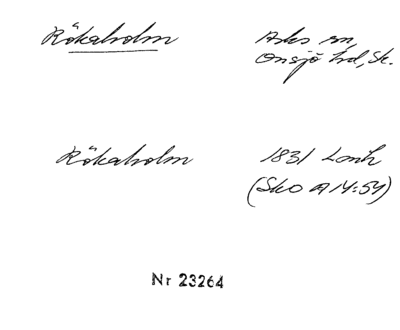 Rökaholm
Asks sn,
Onsjö hd, Sk.
Rökaholm
1831 Lmh
(Sko A14:54)
Nr 23264